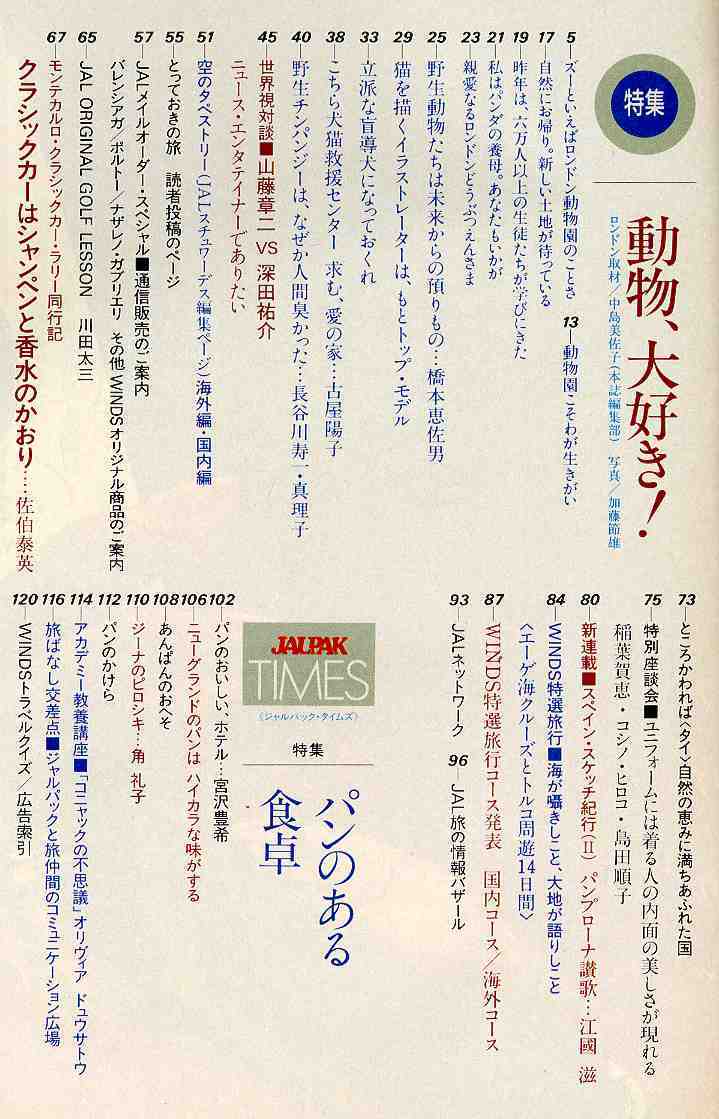 特集
動物、大好き!
ロンドン取材/中島美佐子(本誌編集部) 写真/加藤節雄
5 ズーといえばロンドン動物園のことさ 13 動物園こそわが生きがい
17 自然にお帰り。新しい土地が待っている
19 昨年は、六万人以上の生徒たちが学びにきた
21 私はパンダの養母。あなたもいかが
23 親愛なるロンドンどうぶつえんさま
25 野生動物たちは未来からの預りもの…橋本恵佐男
29 猫を描くイラストレーターは、もとトップ・モデル
33 立派な盲導犬になっておくれ
38 こちら犬猫救援センター 求む、愛の家…古屋陽子
40 野生チンパンジーは、なぜか人間臭かった…長谷川寿一・真理子
45 世界視対談■山藤章二 VS 深田祐介
ニュース・エンタテイナーでありたい
51 空のタペストリー(JALスチュワーデス編集ページ)海外編・国内編
55 とっておきの旅 読者投稿のページ
57 JALメイルオーダー・スペシャル■通信販売のご案内
バレンシアガ/ポルトー/ナザレノ・ガブリエリ その他 WINDSオリジナル商品のご案内
65 JAL ORIGINAL GOLF LESSON 川田太三
67 モンテカルロ・クラシックカー・ラリー同行記
クラシックカーはシャンペンと香水のかおり…佐伯泰英
73 ところかわれば〈タイ〉自然の恵みに満ちあふれた国
75 特別座談会■ユニフォームには着る人の内面の美しさが現れる
稲葉賀恵・コシノ・ヒロコ・島田順子
80 新連載■スペイン・スケッチ紀行(II) パンプローナ讃歌…江國 滋
84 WINDS特選旅行■海が囁きしこと、大地が語りしこと
〈エーゲ海クルーズとトルコ周遊14日間〉
87 WINDS特選旅行コース発表 国内コース/海外コース
93 JALネットワーク 96 JAL旅の情報バザール
JALPAK
TIMES
《ジャルパック・タイムズ》
特集
パンのある
食卓
102 パンのおいしい、ホテル…宮沢豊希
106 ニューグランドのパンは ハイカラな味がする
108 あんぱんのおへそ
110 ジーナのピロシキ…角 礼子
112 パンのかけら
114 アカデミー教養講座■「コニャックの不思議」オリヴィア ドュウサトウ
116 旅ばなし交差点■ジャルパックと旅仲間のコミュニケーション広場
120 WINDSトラベルクイズ/広告索引